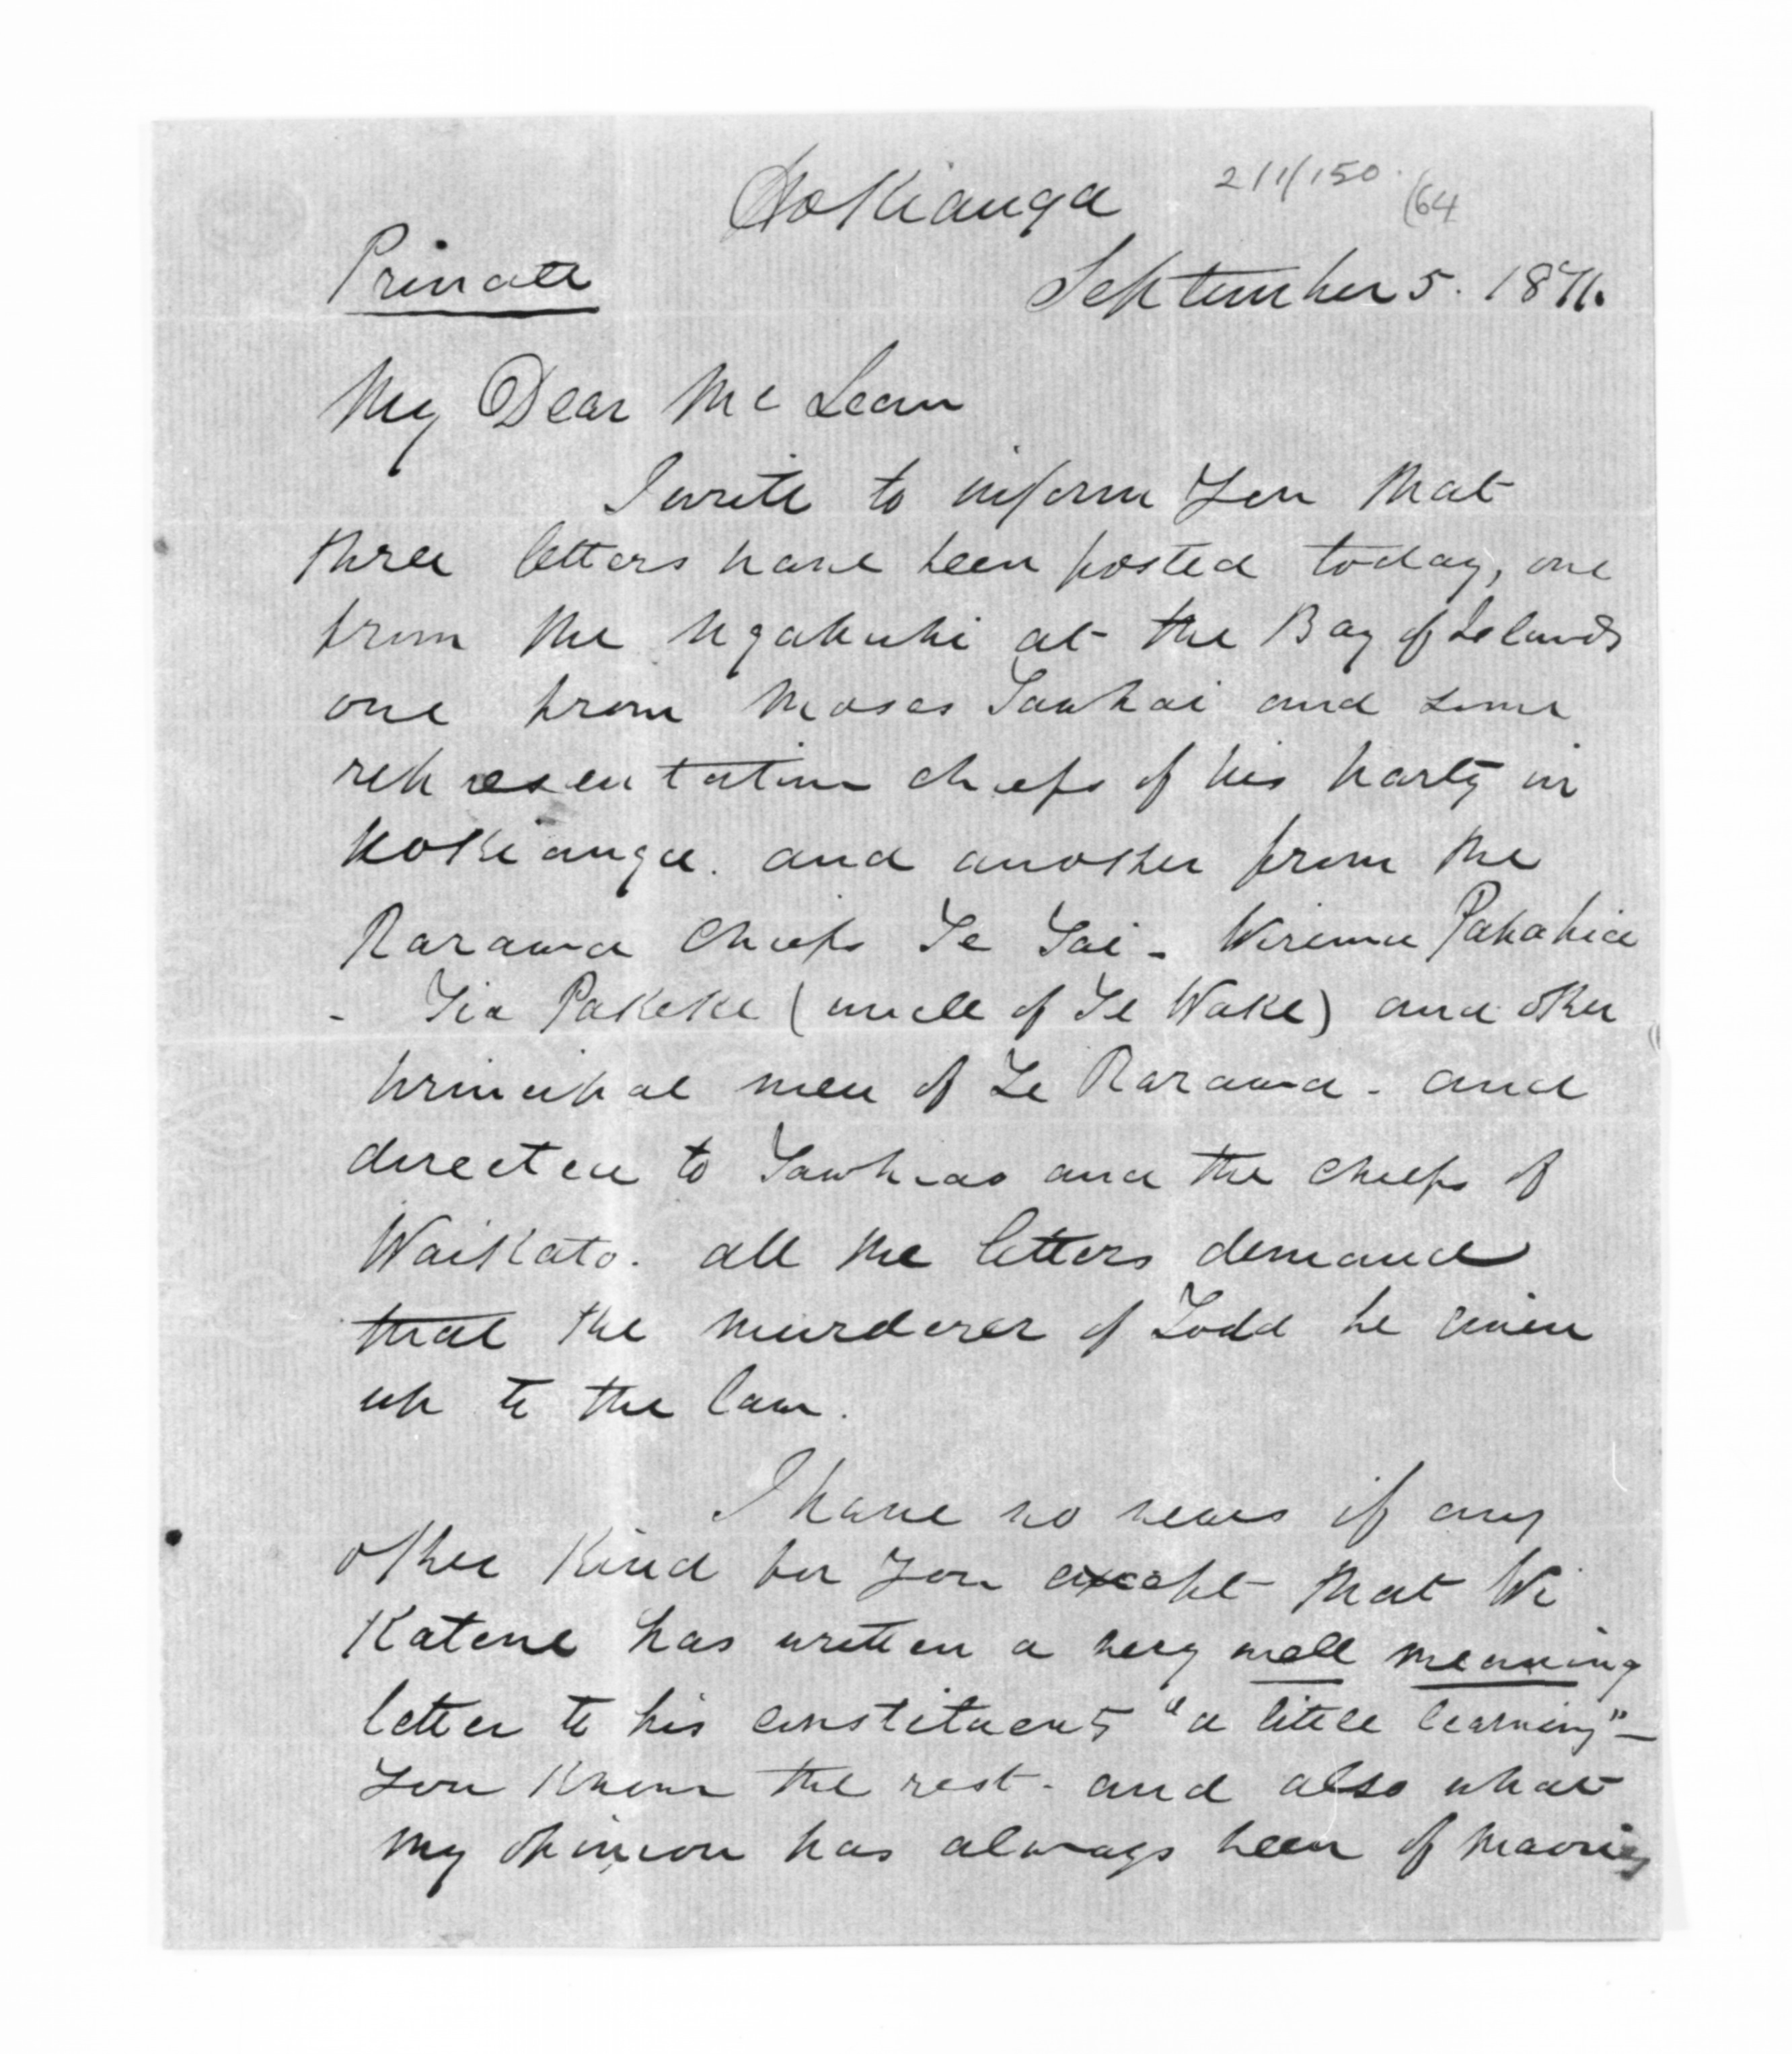 Hokianga
2/1/150.
(64
Private
September 5. 1871.
My Dear McLean
I write to inform you that
three letters have been posted today, one
from the Ngapuhi at the Bay of Islands
one from Moses Tawhai and some
representative chiefs of his party in
Hokianga. and another from the
Rarawa chiefs Te Tai - Wiremu Patahia
- Tia Pakeke (uncle of Te Wake) and other
principal men of Te Rarawa - and
directed to Tawhiao and the chiefs of
Waikato. all the letters demand
that the murderer of Todd be given
up to the law.
I have no news of any
other kind for you except that Wi
Katene has written a very well meaning
letter to his constituents "a little learning" -
you know the rest - and also what
my opinion has always been of maories